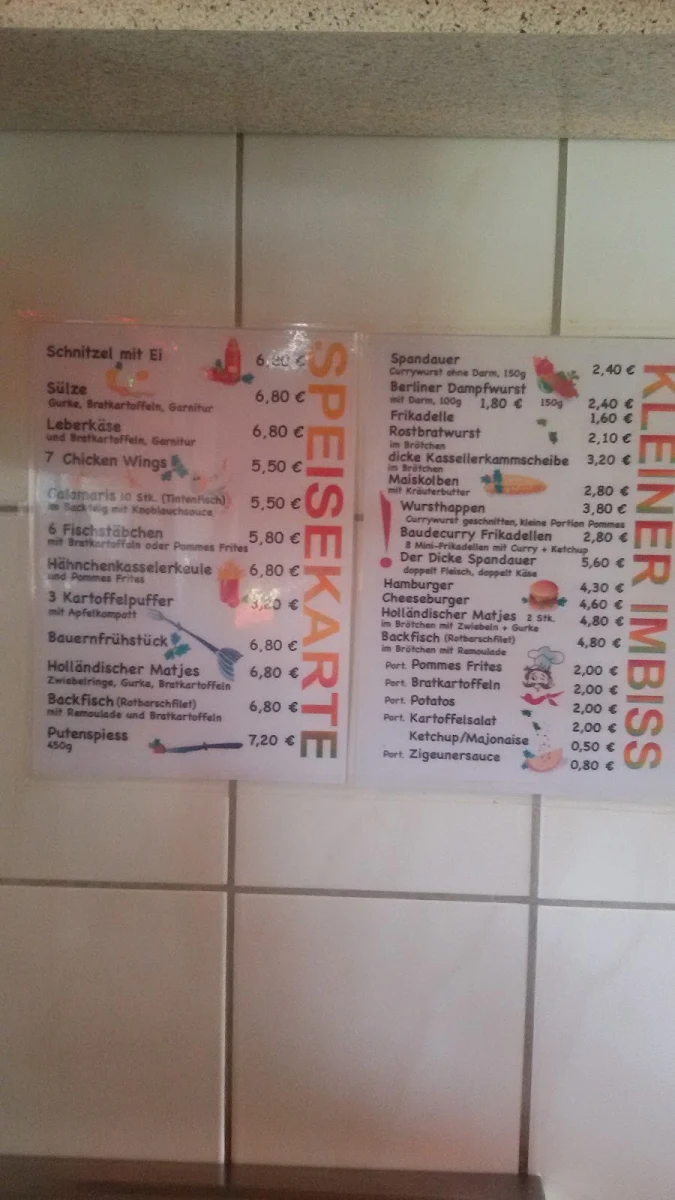 SPEISEKARTE
Schnitzel mit Ei 6,80 €
Sülze 6,80 €
Gurke, Bratkartoffeln, Garnitur
Leberkäse 6,80 €
und Bratkartoffeln, Garnitur
7 Chicken Wings 5,50 €
Calamaris 10 Stk. (Tintenfisch) 5,50 €
im Backteig mit Knoblauchsauce
6 Fischstäbchen 5,80 €
mit Bratkartoffeln oder Pommes Frites
Hähnchenkasselerkeule 6,80 €
und Pommes Frites
3 Kartoffelpuffer 3,20 €
mit Apfelkompott
Bauernfrühstück 6,80 €
Holländischer Matjes 6,80 €
Zwiebelringe, Gurke, Bratkartoffeln
Backfisch (Rotbarschfilet) 6,80 €
mit Remoulade und Bratkartoffeln
Putenspiess 7,20 €
450g
KLEINER IMBISS
Spandauer 2,40 €
Currywurst ohne Darm, 150g
Berliner Dampfwurst
mit Darm, 100g 1,80 € 150g 2,40 €
Frikadelle 1,60 €
Rostbratwurst 2,10 €
im Brötchen
dicke Kassellerkammscheibe 3,20 €
im Brötchen
Maiskolben 2,80 €
mit Kräuterbutter
! Wursthappen 3,80 €
Currywurst geschnitten, kleine Portion Pommes
Baudecurry Frikadellen 2,80 €
8 Mini-Frikadellen mit Curry + Ketchup
Der Dicke Spandauer 5,60 €
doppelt Fleisch, doppelt Käse
Hamburger 4,30 €
Cheeseburger 4,60 €
Holländischer Matjes 2 Stk. 4,80 €
im Brötchen mit Zwiebeln + Gurke
Backfisch (Rotbarschfilet) 4,80 €
im Brötchen mit Remoulade
Port. Pommes Frites 2,00 €
Port. Bratkartoffeln 2,00 €
Port. Potatos 2,00 €
Port. Kartoffelsalat 2,00 €
Ketchup/Majonaise 0,50 €
Port. Zigeunersauce 0,80 €